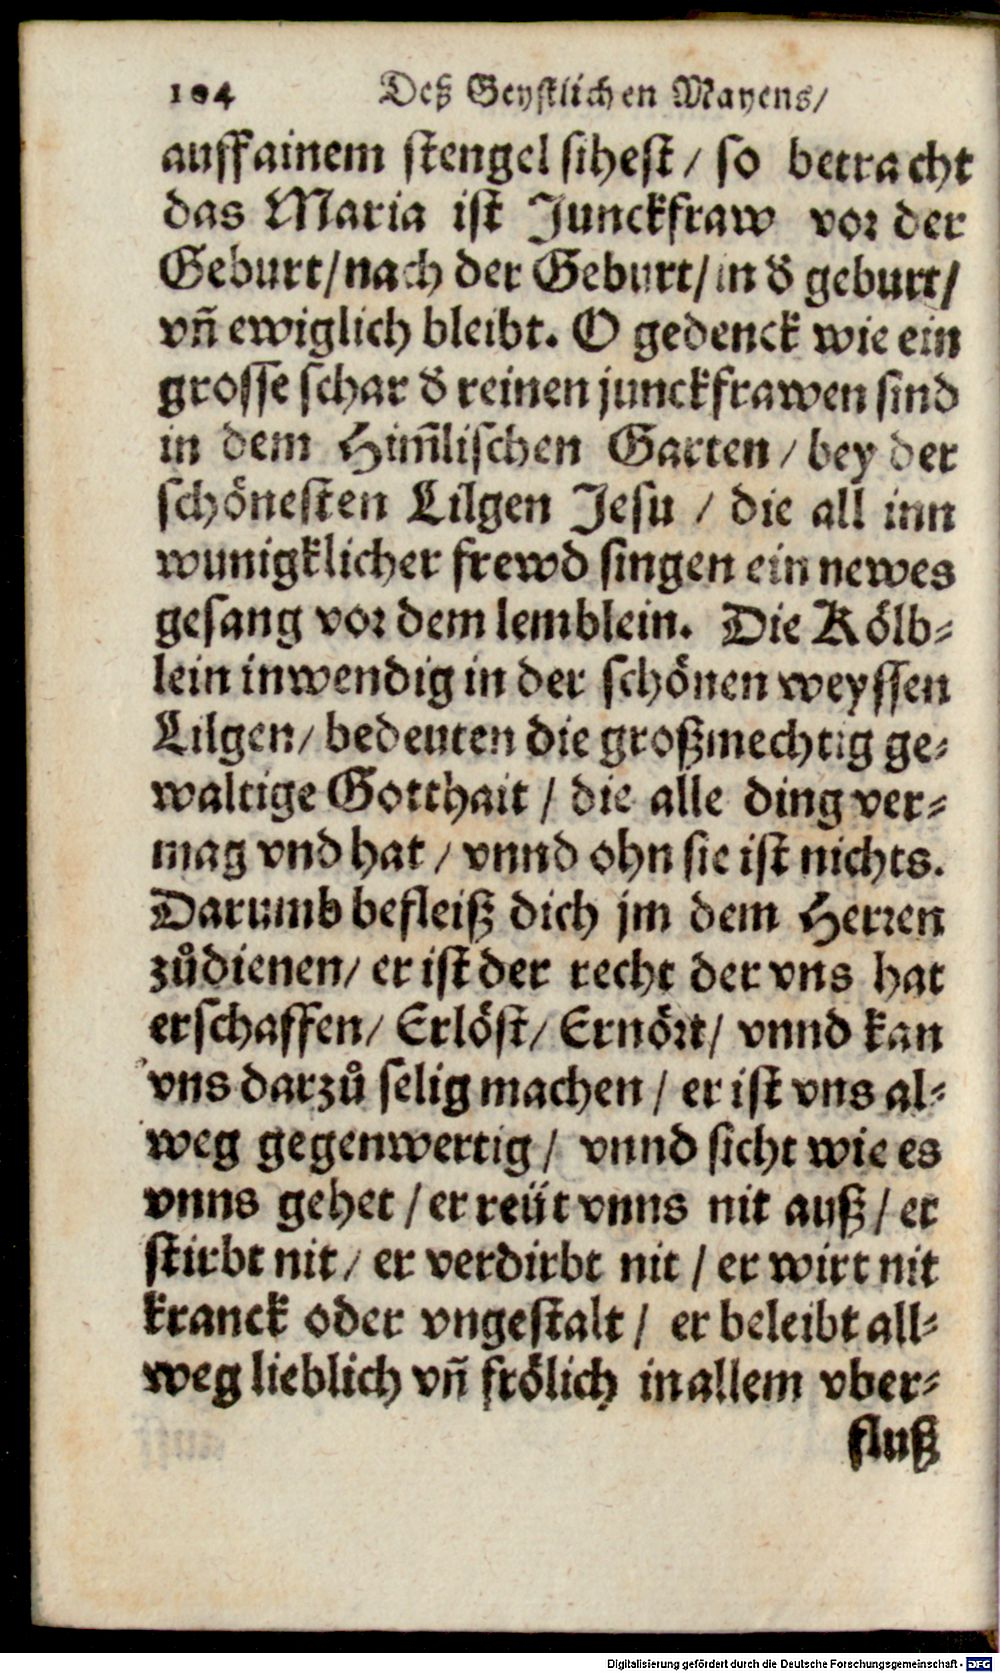 104 Deß Geystlichen Mayens/
auff ainem stengel sihest / so betracht
das Maria ist Junckfraw vor der
Geburt/nach der Geburt/in d̕ geburt/
vn̄ ewiglich bleibt. O gedenck wie ein
grosse schar d̕ reinen junckfrawen sind
in dem Him̄lischen Garten / bey der
schönesten Lilgen Jesu / die all inn
wunigklicher frewd singen ein newes
gesang vor dem lemblein. Die Kölb⸗
lein inwendig in der schönen weyssen
Lilgen/ bedeuten die großmechtig ge⸗
waltige Gotthait / die alle ding ver⸗
mag vnd hat / vnnd ohn sie ist nichts.
Darumb befleiß dich jm dem Herren
zůdienen/ er ist der recht der vns hat
erschaffen/ Erlöst/ Ernört/ vnnd kan
vns darzů selig machen / er ist vns al⸗
weg gegenwertig / vnnd sicht wie es
vnns gehet / er reüt vnns nit auß / er
stirbt nit / er verdirbt nit / er wirt nit
kranck oder vngestalt / er beleibt all⸗
weg lieblich vn̄ frölich in allem vber⸗
fluß
Digitalisierung gefördert durch die Deutsche Forschungsgemeinschaft - DFG